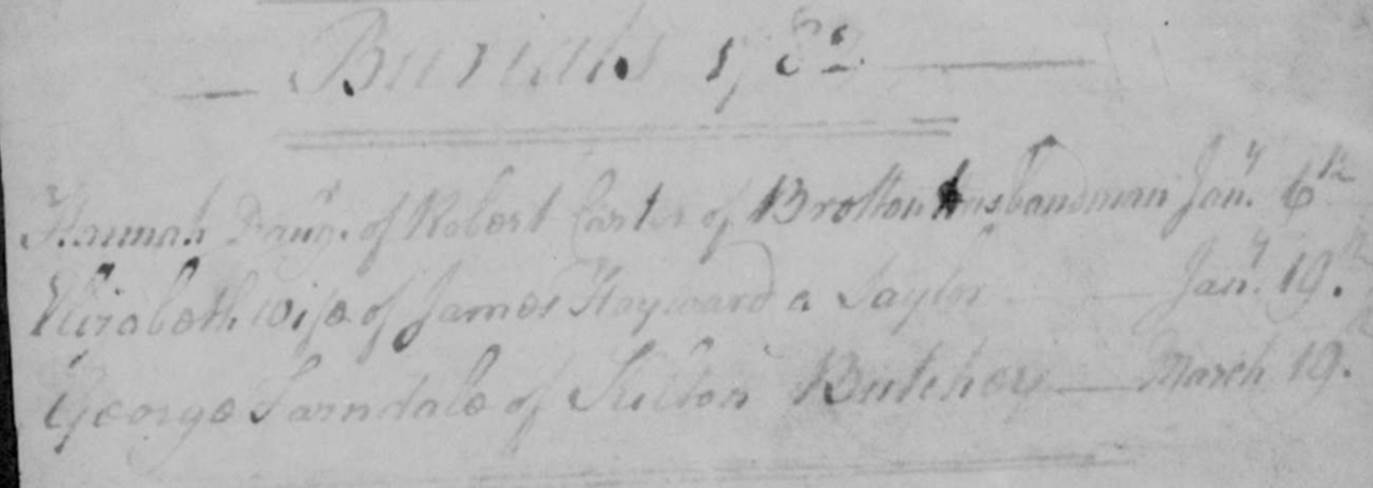 Burials 1782
Hannah Daugr. of Robert Carter of Brotton husbandman Jany. 6th
Elizabeth wife of James Hayward a Taylor Jany. 19th.
George Farndale of Kilton Butcher March 19.